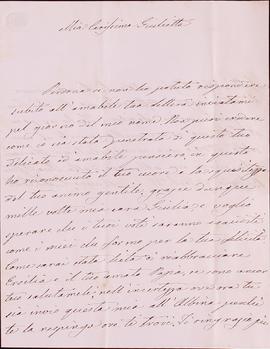 Mia Carissima Giulietta
Perdona se non ho potuto rispondere
subito all'amabile tua lettera inviatami
pel giorno del mio nome. Non puoi credere
come io sia stata penetrata di questo tuo
delicato ed amabile pensiero, in questo
ho riconosciuto il tuo cuore e la squisitezza
del tuo animo gentile; grazie dunque
mille volte mia cara Giulia; e voglio
sperare che i tuoi voti saranno esauditi
come i miei che formo per la tua felicità
Come sarai stata lieta di riabbracciare
Ersilia e il tuo amato Papà; se sono ancor
tuo salutameli; nell'incertezza ove ora tu
sia invio questa mia all'Albina perchè
te la respinga ove ti trovi. Ti ringrazio